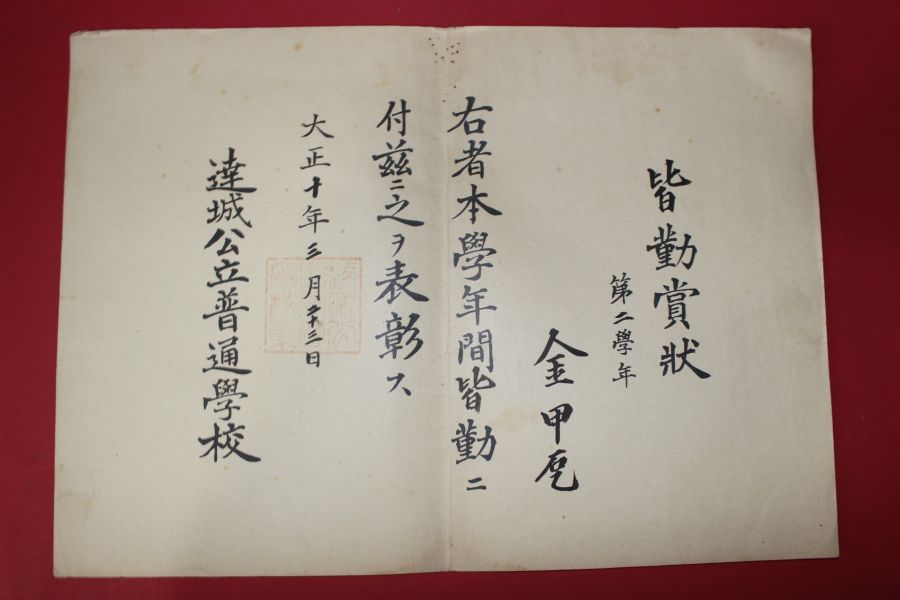 皆勤賞狀
第二學年
金甲
右者本學年間皆勤ニ
付茲ニ之ヲ表彰ス
大正十年三月二十三日
達城公立普通學校